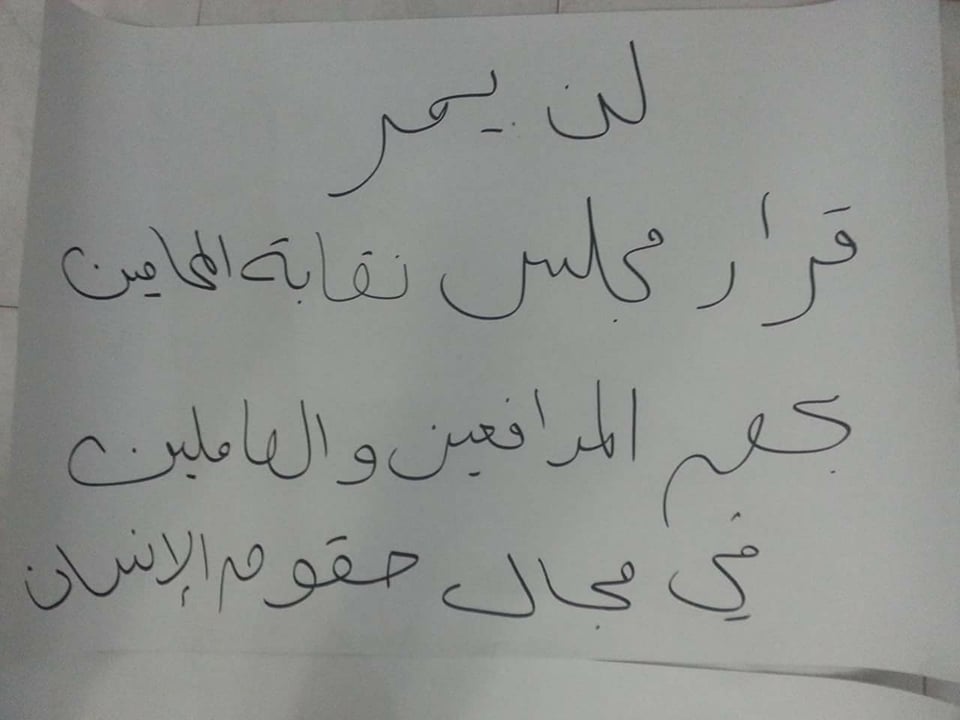 لن يمر
قرار مجلس نقابة المحامين
بحق المدافعين والعاملين
في مجال حقوق الإنسان